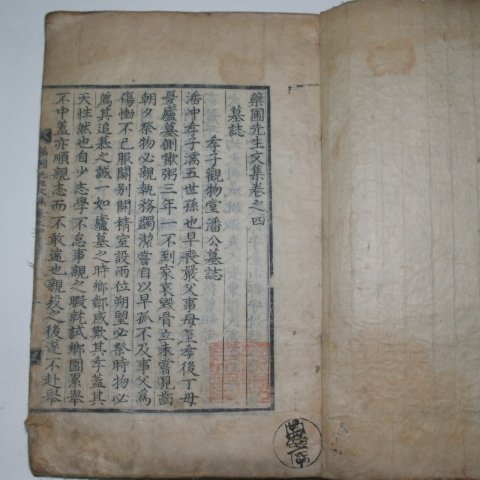 藥圃先生文集卷之四
墓誌
孝子觀物堂潘公墓誌
潘沖孝子濡五世孫也早喪嚴父事母董孝後丁母
憂廬墓側歠粥三年一不到家哀毀骨立未嘗見齒
朝夕祭物必親執務蠲潔嘗自以早孤不及事父爲
傷慟不已服闋別開精室設兩位朔望必祭時物必
薦其追慕之誠一如廬墓之時鄕鄰咸歎其孝盖其
天性然也自少志學不怠事親之暇就試鄕圍累擧
不中盖亦順親志而不敢違也親歿之後遂不赴擧